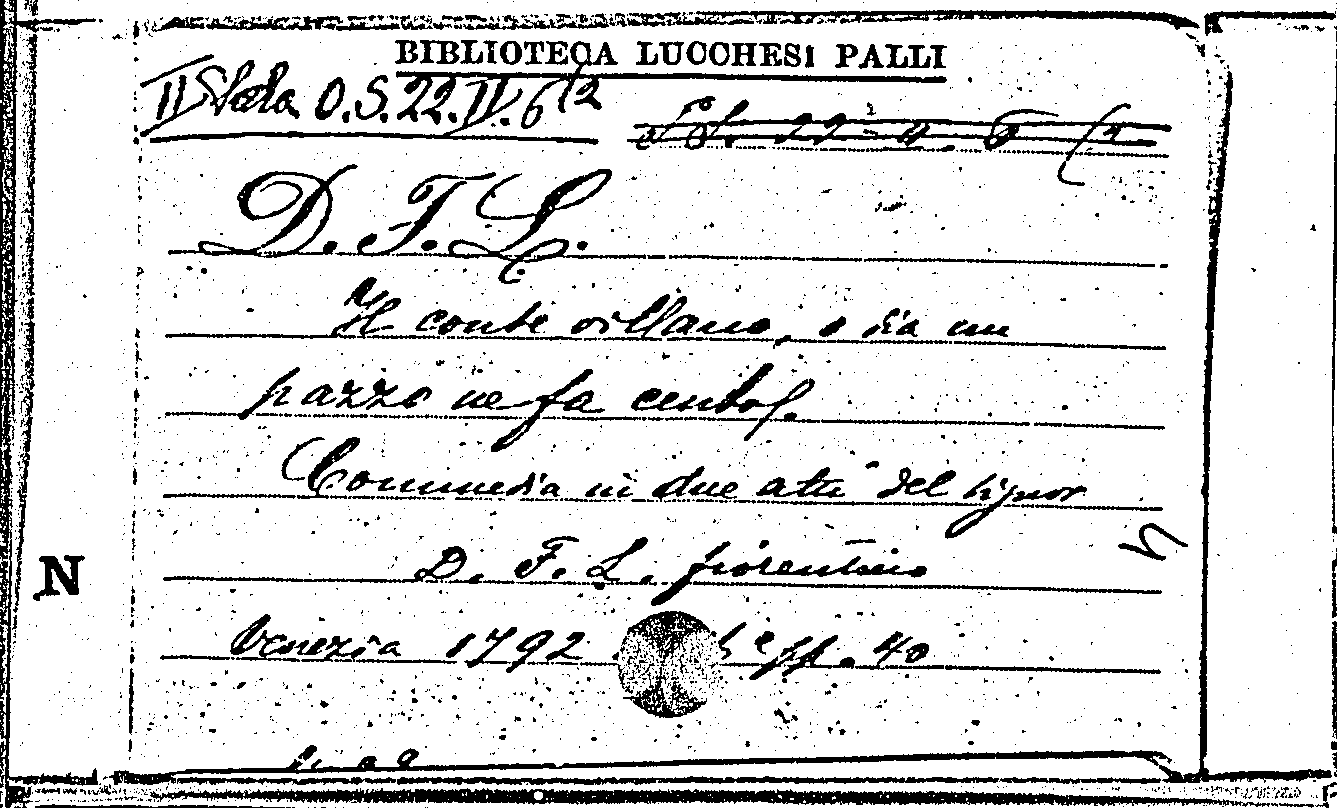 BIBLIOTECA LUCCHESI PALLI
II Sala O.S.22.IV.6/2
22 6 /2
D. F. L.
Il conte villano, o sia un
pazzo ne fa cento.
Commedia in due atti del signor
D. F. L. fiorentino
N
Venezia 1792 pp. 40